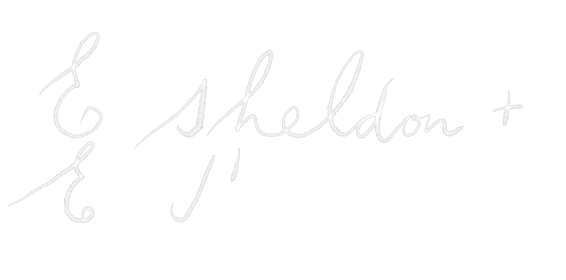 E sheldon +
E